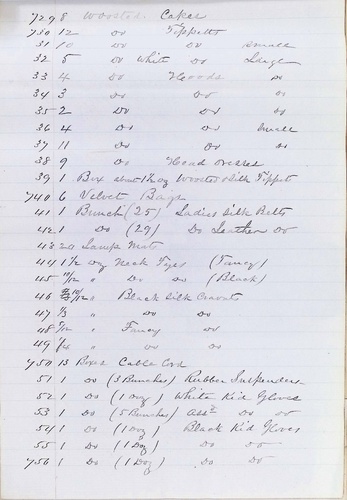 7298 Woosted Capes
730 12 Do Tippetts
31 10 Do Do small
32 5 Do White Do Large
33 4 Do Hoods Do
34 3 Do Do Do
35 2 Do Do Do
36 4 Do Do small
37 11 Do Do Do
38 9 Do Head dresses
39 1 Box about 1½ oz Woosted Silk Tippet
740 6 Velvet Bags
41 1 Bunch (25) Ladies Silk Belts
42 1 Do (29) Do Leather Do
43 20 Lamp Mats
44 1½ Dz Neck Tyes (Fancy)
45 10/12 " Do Do (Black)
46 10/12 " Black Silk Cravats
47 1/3 " Do Do
48 7/12 " Fancy Do
49 1/4 " Do Do
750 13 Boxes Cable Cord
51 1 Do (3 Bunches) Rubber Suspenders
52 1 Do (1 Doz) White Kid Gloves
53 1 Do (5 Bunches) Asst Do Do
54 1 Do (1 Doz) Black Kid Gloves
55 1 Do (1 Doz) Do Do
756 1 Do (1 Doz) Do Do